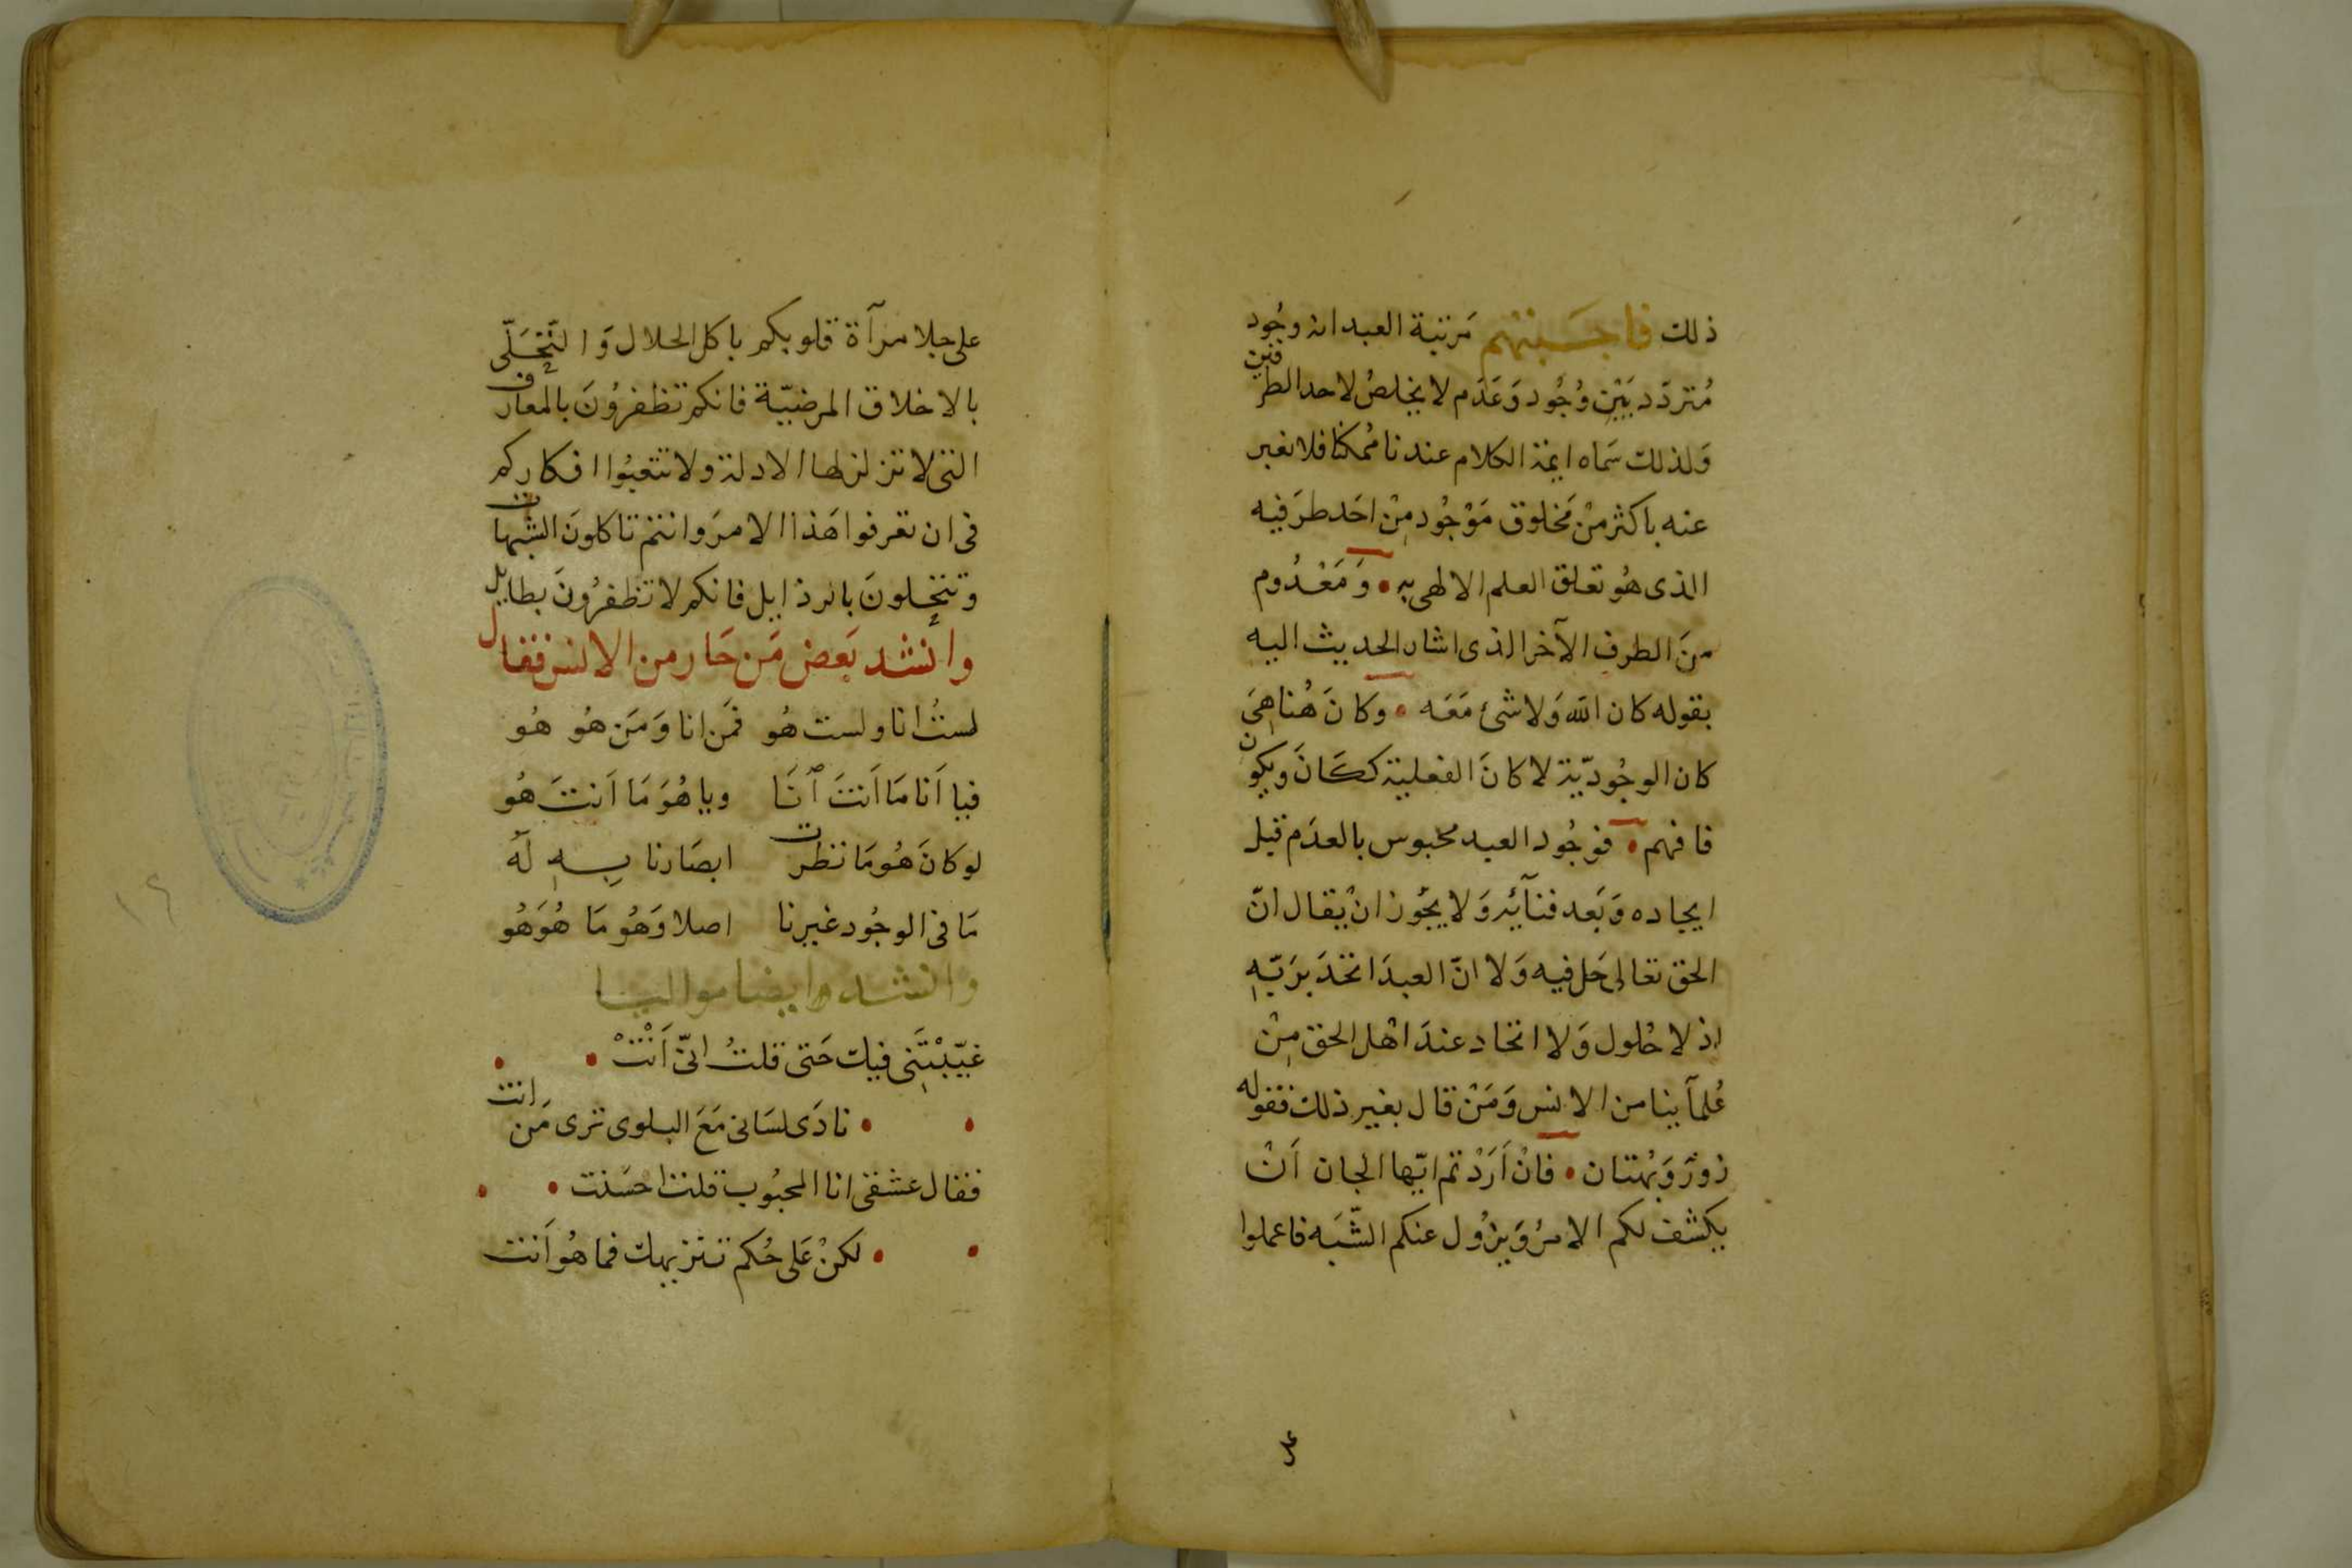 ذلك فاجَبتهم مَرتبة العبد انه وجُود
مُتردّد بَيْن وُجُود وَعَدَم لا يخلصُ لاحد الطرفين
وَلذلك سَماه ايمة الكلام عندنا مُمكنا فلا نعبر
عنه باكثر مِنْ مَخلوق مَوْجُود مِنْ احَد طرَفيه
الذى هُو تعلق العلم الالهى به • وَمَعْدُوم
منَ الطرف الآخر الذى اشار الحديث اليه
بقوله كان الله وَلا شئ مَعَه • وكانَ هُنا هِىَ
كان الوجُوديّة لا كانَ الفعلية ككَانَ ويكون
فافهم • فوجُود العبد محبوس بالعدَم قبل
ايجاده وَبَعد فنآئه وَلا يجُوز انْ يُقال انّ
الحق تعالى حَل فيه وَلا انّ العبدَ اتحَدَ برَبّهِ
اذ لا حُلول وَلا اتحاد عندَ اهْل الحق مِنْ
عُلمآينا من الانس وَمَنْ قال بغير ذلك فقوله
زورٌ وَبُهتان • فانْ اَرَدْتم ايّها الجان اَنْ
يكشف لكم الامرُ وَيزُول عنكم الشّبَه فاعملوا
على جلا مرآة قلوبكم باكل الحلال وَالتّخَلّى
بالاخلاق المرضيّة فانكم تظفرُونَ بالمعارف
التى لا تزلزلها الادلة ولا تتعبُوا افكاركم
فى ان تعرفوا هَذا الامرَ وانتم تاكلونَ الشبهات
وتتخلونَ بالرذايل فانكم لا تظفرُونَ بطايل
وانشد بَعض مَن حَار من الانس فقال
لستُ انا ولست هُو فمَن انا وَمَن هُو هُو
فيا اَنا مَا اَنتَ اَنَا ويا هُوَ مَا اَنتَ هُو
لو كانَ هُو مَا نظرت ابصَارنا بِهِ لَهُ
مَا فى الوجُود غيرنا اصلا وَهُو مَا هُوَ هُو
وانشدوا ايضا مواليا
غيّبْتَنِى فيك حَتى قلتُ انىّ اَنْتْ • •
• • نادَى لسَانى مَعَ البلوى ترى مَن انت
فقال عشقى انا المحبُوب قلت احْسَنت • •
• • لكنْ عَلى حُكم تنزيهك فما هُو اَنت